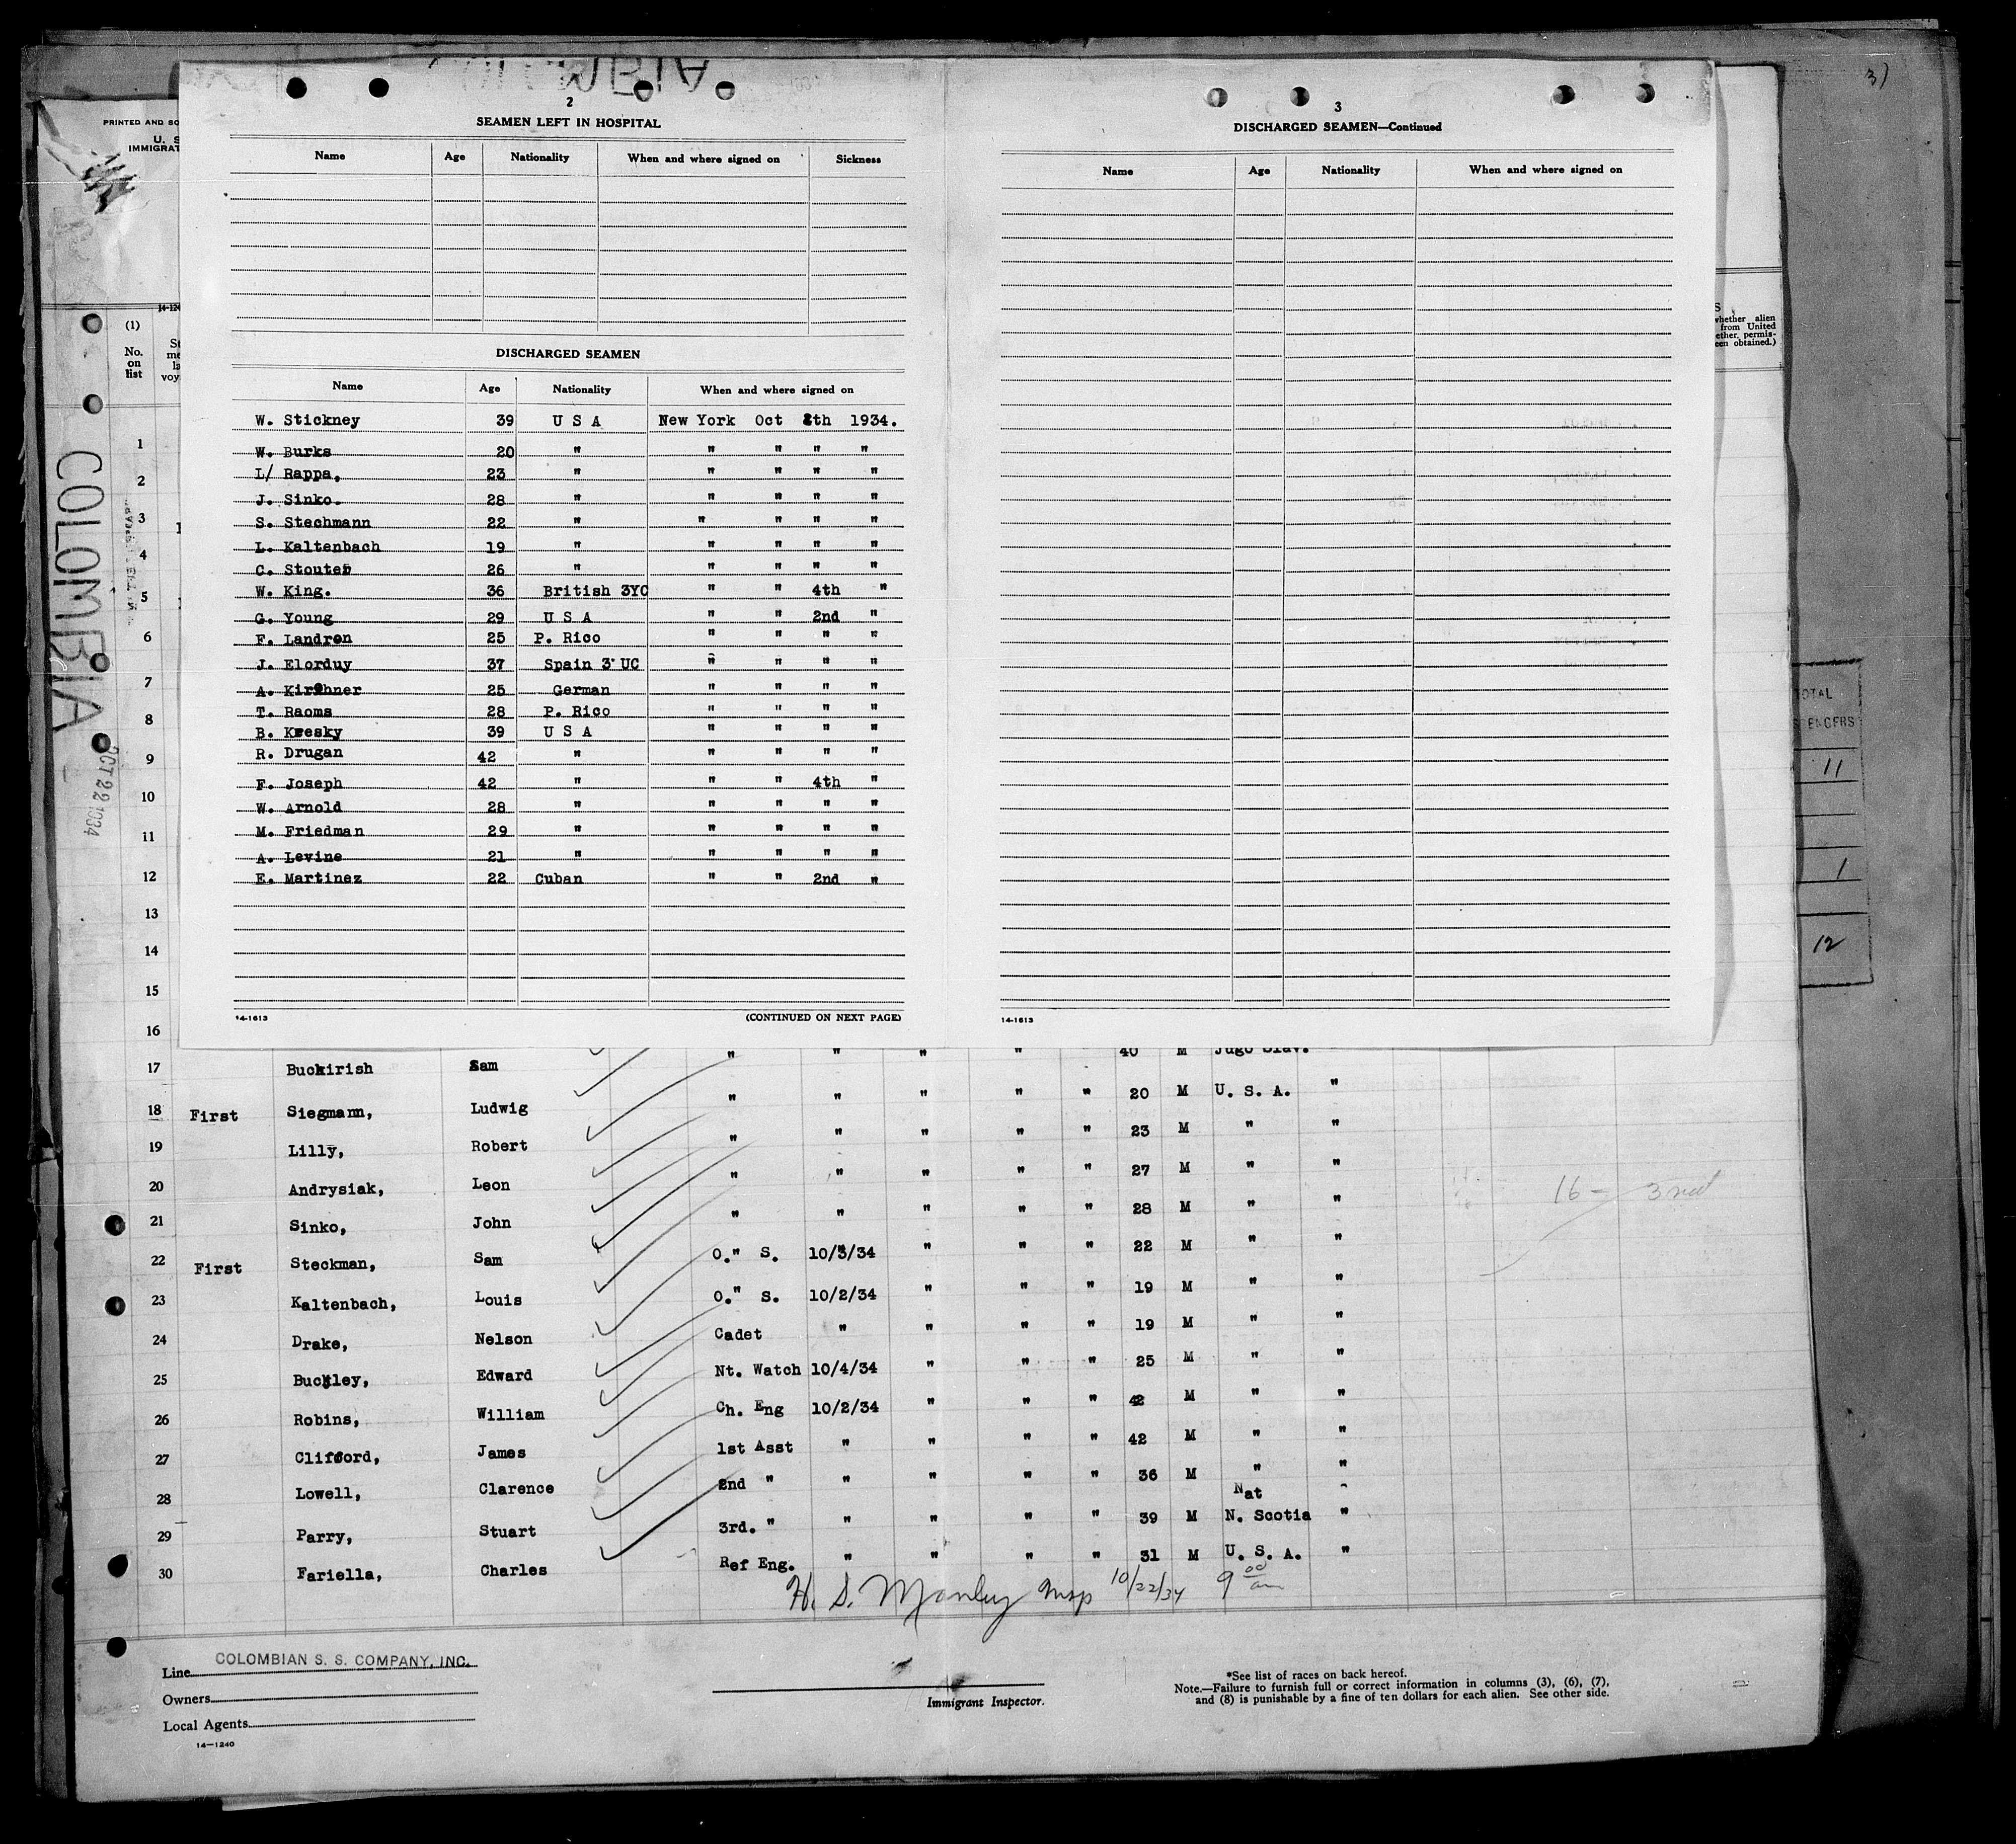 3)
COLOMBIA
PRINTED AND SO
U. S
IMMIGRAT
2
SEAMEN LEFT IN HOSPITAL
Name Age Nationality When and where signed on Sickness
DISCHARGED SEAMEN
Name Age Nationality When and where signed on
W. Stickney 39 U S A New York Oct 2th 1934.
W. Burks 20 " " " " "
L/ Rappa, 23 " " " " "
J. Sinko. 28 " " " " "
S. Stechmann 22 " " " " "
L. Kaltenbach 19 " " " " "
C. Stouter 26 " " " " "
W. King. 36 British 3YC " " 4th "
G. Young 29 U S A " " 2nd "
F. Landron 25 P. Rico " " " "
J. Elorduy 37 Spain 3 UC " " " "
A. Kirchner 25 German " " " "
T. Raoms 28 P. Rico " " " "
B. Kresky 39 U S A " " " "
R. Drugan 42 " " " " "
F. Joseph 42 " " " 4th "
W. Arnold 28 " " " " "
M. Friedman 29 " " " " "
A. Levine 21 " " " " "
E. Martinez 22 Cuban " " 2nd "
14-1613 (CONTINUED ON NEXT PAGE)
3
DISCHARGED SEAMEN—Continued
Name Age Nationality When and where signed on
14-1613
14-124
(1)
No.
on
list
St
me
la
voy
S
whether alien
from United
ether permis-
een obtained.)
COLOMBIA
OCT 22 1934
TOTAL
11
1
12
1
2
3
4
5
6
7
8
9
10
11
12
13
14
15
16
" " " " 40 M Jugo Slav.
17 Buckirish Sam " " " " " 20 M U. S. A. "
18 First Siegmann, Ludwig " " " " " 23 M " "
19 Lilly, Robert " " " " " 27 M " "
20 Andrysiak, Leon " " " " " 28 M " "
21 Sinko, John O." S. 10/3/34 " " " 22 M " "
22 First Steckman, Sam O." S. 10/2/34 " " " 19 M " "
23 Kaltenbach, Louis Cadet " " " " 19 M " "
24 Drake, Nelson Nt. Watch 10/4/34 " " " 25 M " "
25 Buckley, Edward Ch. Eng 10/2/34 " " " 42 M " "
26 Robins, William 1st Asst " " " " 42 M " "
27 Clifford, James 2nd " " " " " 36 M " "
Nat
28 Lowell, Clarence 3rd. " " " " " 39 M N. Scotia "
29 Parry, Stuart Ref Eng. " " " " 31 M U. S. A. "
30 Fariella, Charles
16 - 3 red
H. S. Manley Insp 10/22/34 9 00 am
Line COLOMBIAN S. S. COMPANY, INC.
Owners
Local Agents
14—1240
Immigrant Inspector.
*See list of races on back hereof.
Note.—Failure to furnish full or correct information in columns (3), (6), (7),
and (8) is punishable by a fine of ten dollars for each alien. See other side.